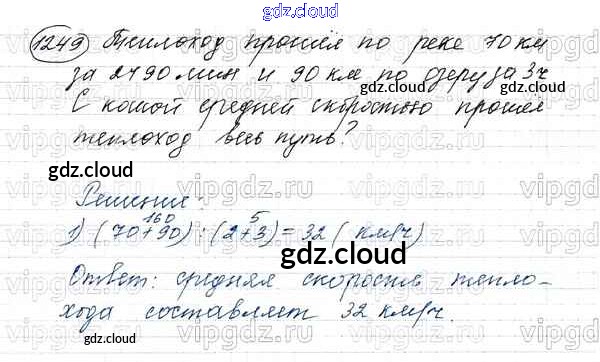 gdz.cloud
1249 Теплоход прошёл по реке 70 км
за 2ч90мин и 90 км по озеру за 3ч
С какой средней скоростью прошёл
теплоход весь путь?
gdz.cloud
gdz.cloud
gdz.cloud
Решение:
160 5
1) (70+90) : (2+3) = 32 ( км/ч)
gdz.cloud
Ответ: средняя скорость тепло-
хода составляет 32 км/ч.
gdz.cloud
gdz.cloud
vipgdz.ru